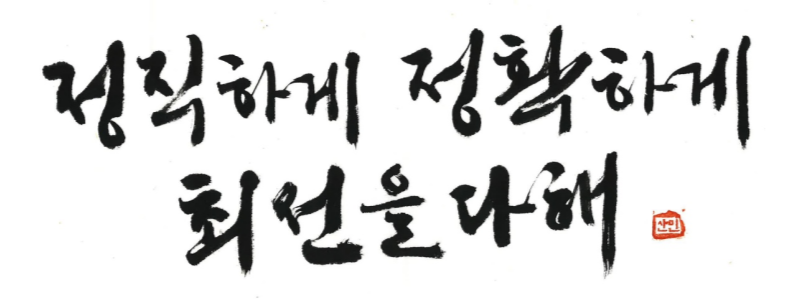 정직하게 정확하게
최선을다해